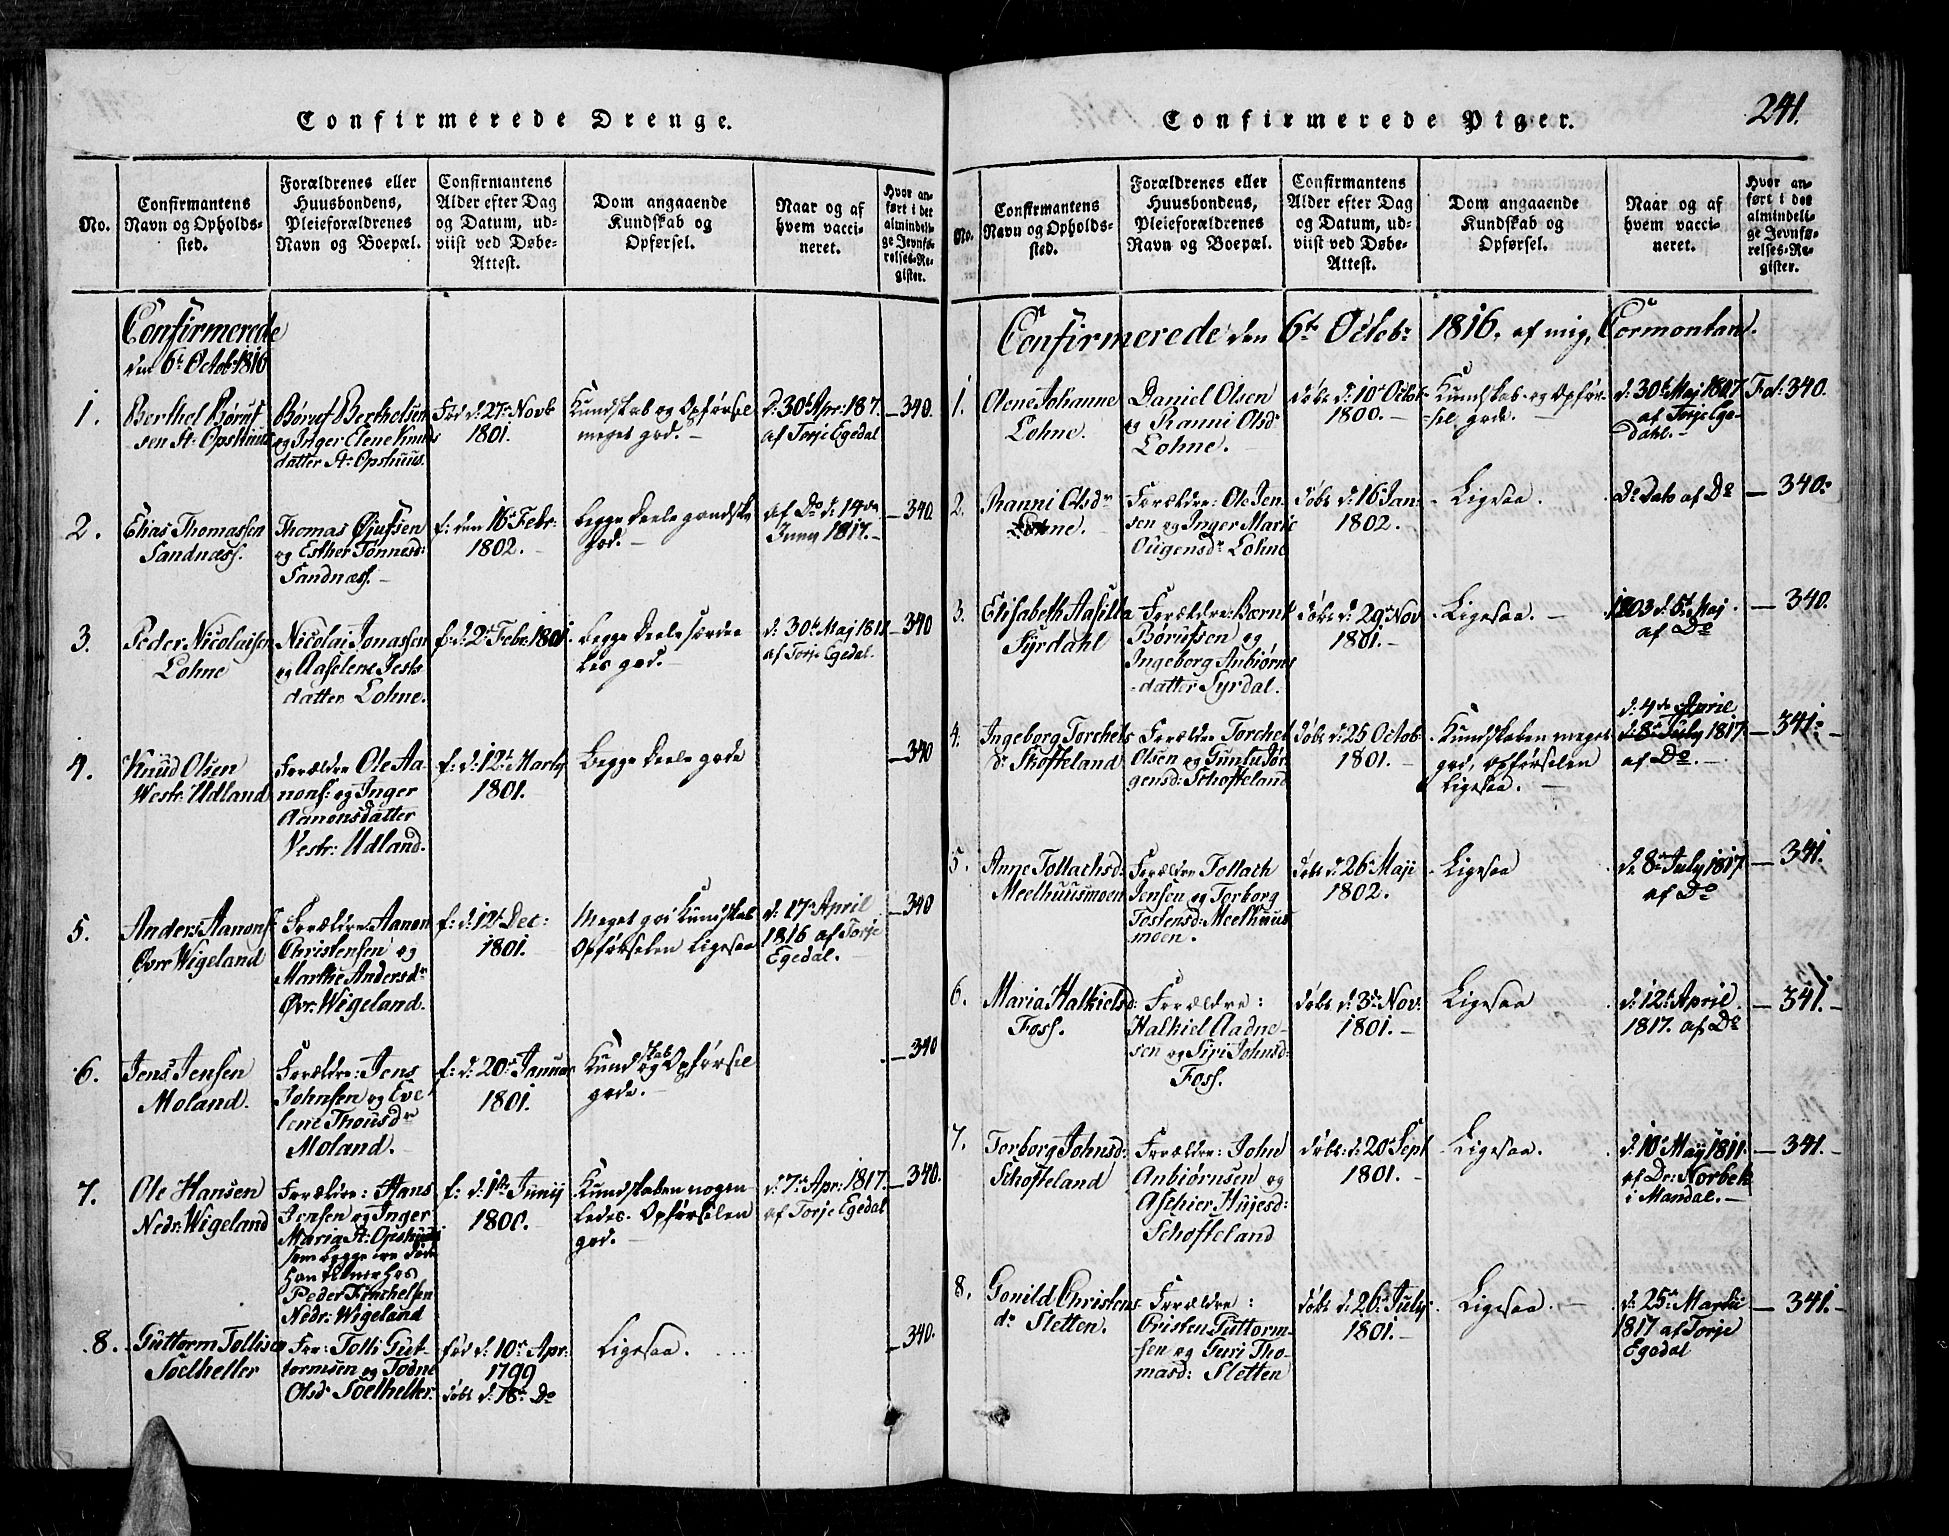 Confirmerede Drenge.
No.
Confirmantens
Navn og Opholds-
sted.
Forældrenes eller
Huusbondens,
Pleieforældrenes
Navn og Boepæl.
Confirmantens
Alder efter Dag
og Datum, ud-
viist ved Døbe-
Attest.
Dom angaaende
Kundskab og
Opførsel.
Naar og af
hvem vacci-
neret.
Hvor an-
ført i det
almindeli-
ge Jevnfø-
relses-Re-
gister.
Confirmerede
den 6te Octobr 1816
1.
Berthel Børuf
sen St: Opshuus
Børuf Berthelsen
og Inger Elene Knuds
datter St: Opshuus.
Fød d: 27de Novb
1801.
Kundskab og Opførsel
meget god. -
d: 30te Apr: 187.
af Torje Egedal
340.
2.
Elias Thomassen
Sandnæss.
Thomas Øjufsen
og Esther Tønnesd:
Sandnæss. -
f: den 16de Febr:
1802. -
begge Deele gandske
god. -
af Do d: 14de
Juny 1817. -
340.
3.
Peder Nicolaisen
Lohne
Nicolai Jonassen
og Aaselene Jests
datter Lohne.
f: d: 2de Febr: 1801.
begge Deele særde
les god. -
d: 30te Maj 1811
af Torje Egedal.
340
4.
Knud Olsen
Westr: Udland
Forældre Ole Aa-
nons: og Inger
Aanonsdatter
Vestr: Udland.
f: d: 12te Marty
1801.
Begge Deele gode
340
5.
Anders Aanons:
Øvre Wigeland
Forældre: Aanon
Christensen og
Marthe Andersdr
Øvr: Wigeland.
f: d: 12te Dec:
1801. -
Meget god Kundskab
Opførselen Ligesaa
d: 17de April
1816 af Torje
Egedal. -
340
6.
Jens Jensen
Moland.
Forældre: Jens
Johnsen og Eve
lene Thousdr
Moland.
f: d: 20de Januar
1801.
Kundskab og Opførsel
gode. -
340
7.
Ole Hansen
Nedr: Wigeland
Forældre: Hans
Jensen og Inger
Maria St: Opshuus
som begge ere døde
han tiener hos
Peder Torchelsen
Nedr: Wigeland
f: d: 1ste Junij
1800. -
Kundskaben nogen
ledes. Opførselen
god. -
d: 7de Apr: 1817.
af Torje Egedal
340.
8.
Guttorm Tollisen
Soelhelter
For: Tolli Gut-
tormsen og Todne
Olsdr Soelhelter.
fød d: 10de Apr:
1799
døbt d: 18de Do
Ligesaa.
340.
Confirmerede Piger.
241.
No.
Confirmantens
Navn og Opholds-
sted.
Forældrenes eller
Huusbondens,
Pleieforældrenes
Navn og Boepæl.
Confirmantens
Alder efter Dag
og Datum, ud-
viist ved Døbe-
Attest.
Dom angaaende
Kundskab og
Opførsel.
Naar og af
hvem vacci-
neret.
Hvor an-
ført i det
almindeli-
ge Jevnfø-
relses-Re-
gister.
Confirmerede den 6te Octob: 1816. af mig, Cormontan.
1.
Olene Johanne
Lohne.
Daniel Olsen
og Ranni Olsd:
Lohne.
døbt d: 10de Octob:
1800. -
Kundskab og Opfør-
sel gode. -
d: 30te Maj 1807.
af Torje Ege-
dahl. -
Fol: 340.
2.
Ranni Olsdr
Lohne.
Forældre: Ole Jen-
sen og Inger Marie
Ougensdr Lohne
døbt d: 16de Jan:
1802. -
Ligesaa.
Do Dato af Do
340.
3.
Elisabeth Aasille
Syrdahl
Forældre: Bærnt
Børufsen og
Ingeborg Anbiørns
datter Syrdal.
døbt d: 29de Nov
1801. -
Ligesaa. -
1803 d: 5te Maj.
af Do
340.
4.
Ingeborg Torchels
dr Skofteland
Forældre Torchel
Olsen og Gunlu Jør-
gensd: Schofteland
døbt d: 25 Octob:
1801. -
Kundskaben meget
god, Opførselen
Ligesaa. -
d: 4de April
d: 8de July 1817.
af Do. -
341.
5.
Anne Tollachsd:
Meelhuusmoen
Forældre Tollach
Jensen og Torborg
Tostensd: Meelhuus
moen.
døbt d: 26de Maji
1802. -
Ligesaa
d: 8de July 1817.
af Do
341.
6.
Maria Halkielsd:
Foss.
Forældre:
Halkiel Aadne-
sen og Siri Johnsd:
Foss.
døbt d: 3de Nov:
1801. -
Ligesaa
d: 12te April
1817. af Do
341.
7.
Torborg Johnsd:
Schofteland
Forældre: John
Anbiørnsen og
Aschier Hujesd:
Schofteland
døbt: d: 20de Sept
1801. -
Ligesaa.
d: 10de Maij 1811.
af Dr: Norbek
i Mandal. -
341.
8.
Gonild Christens
dr Sletten.
Forældre:
Cristen Guttorm-
sen og Guri Tho-
masd: Sletten
døbt d: 26de July
1801. -
Ligesaa. -
d: 25de Martii
1817 af Torje
Egedal
341.